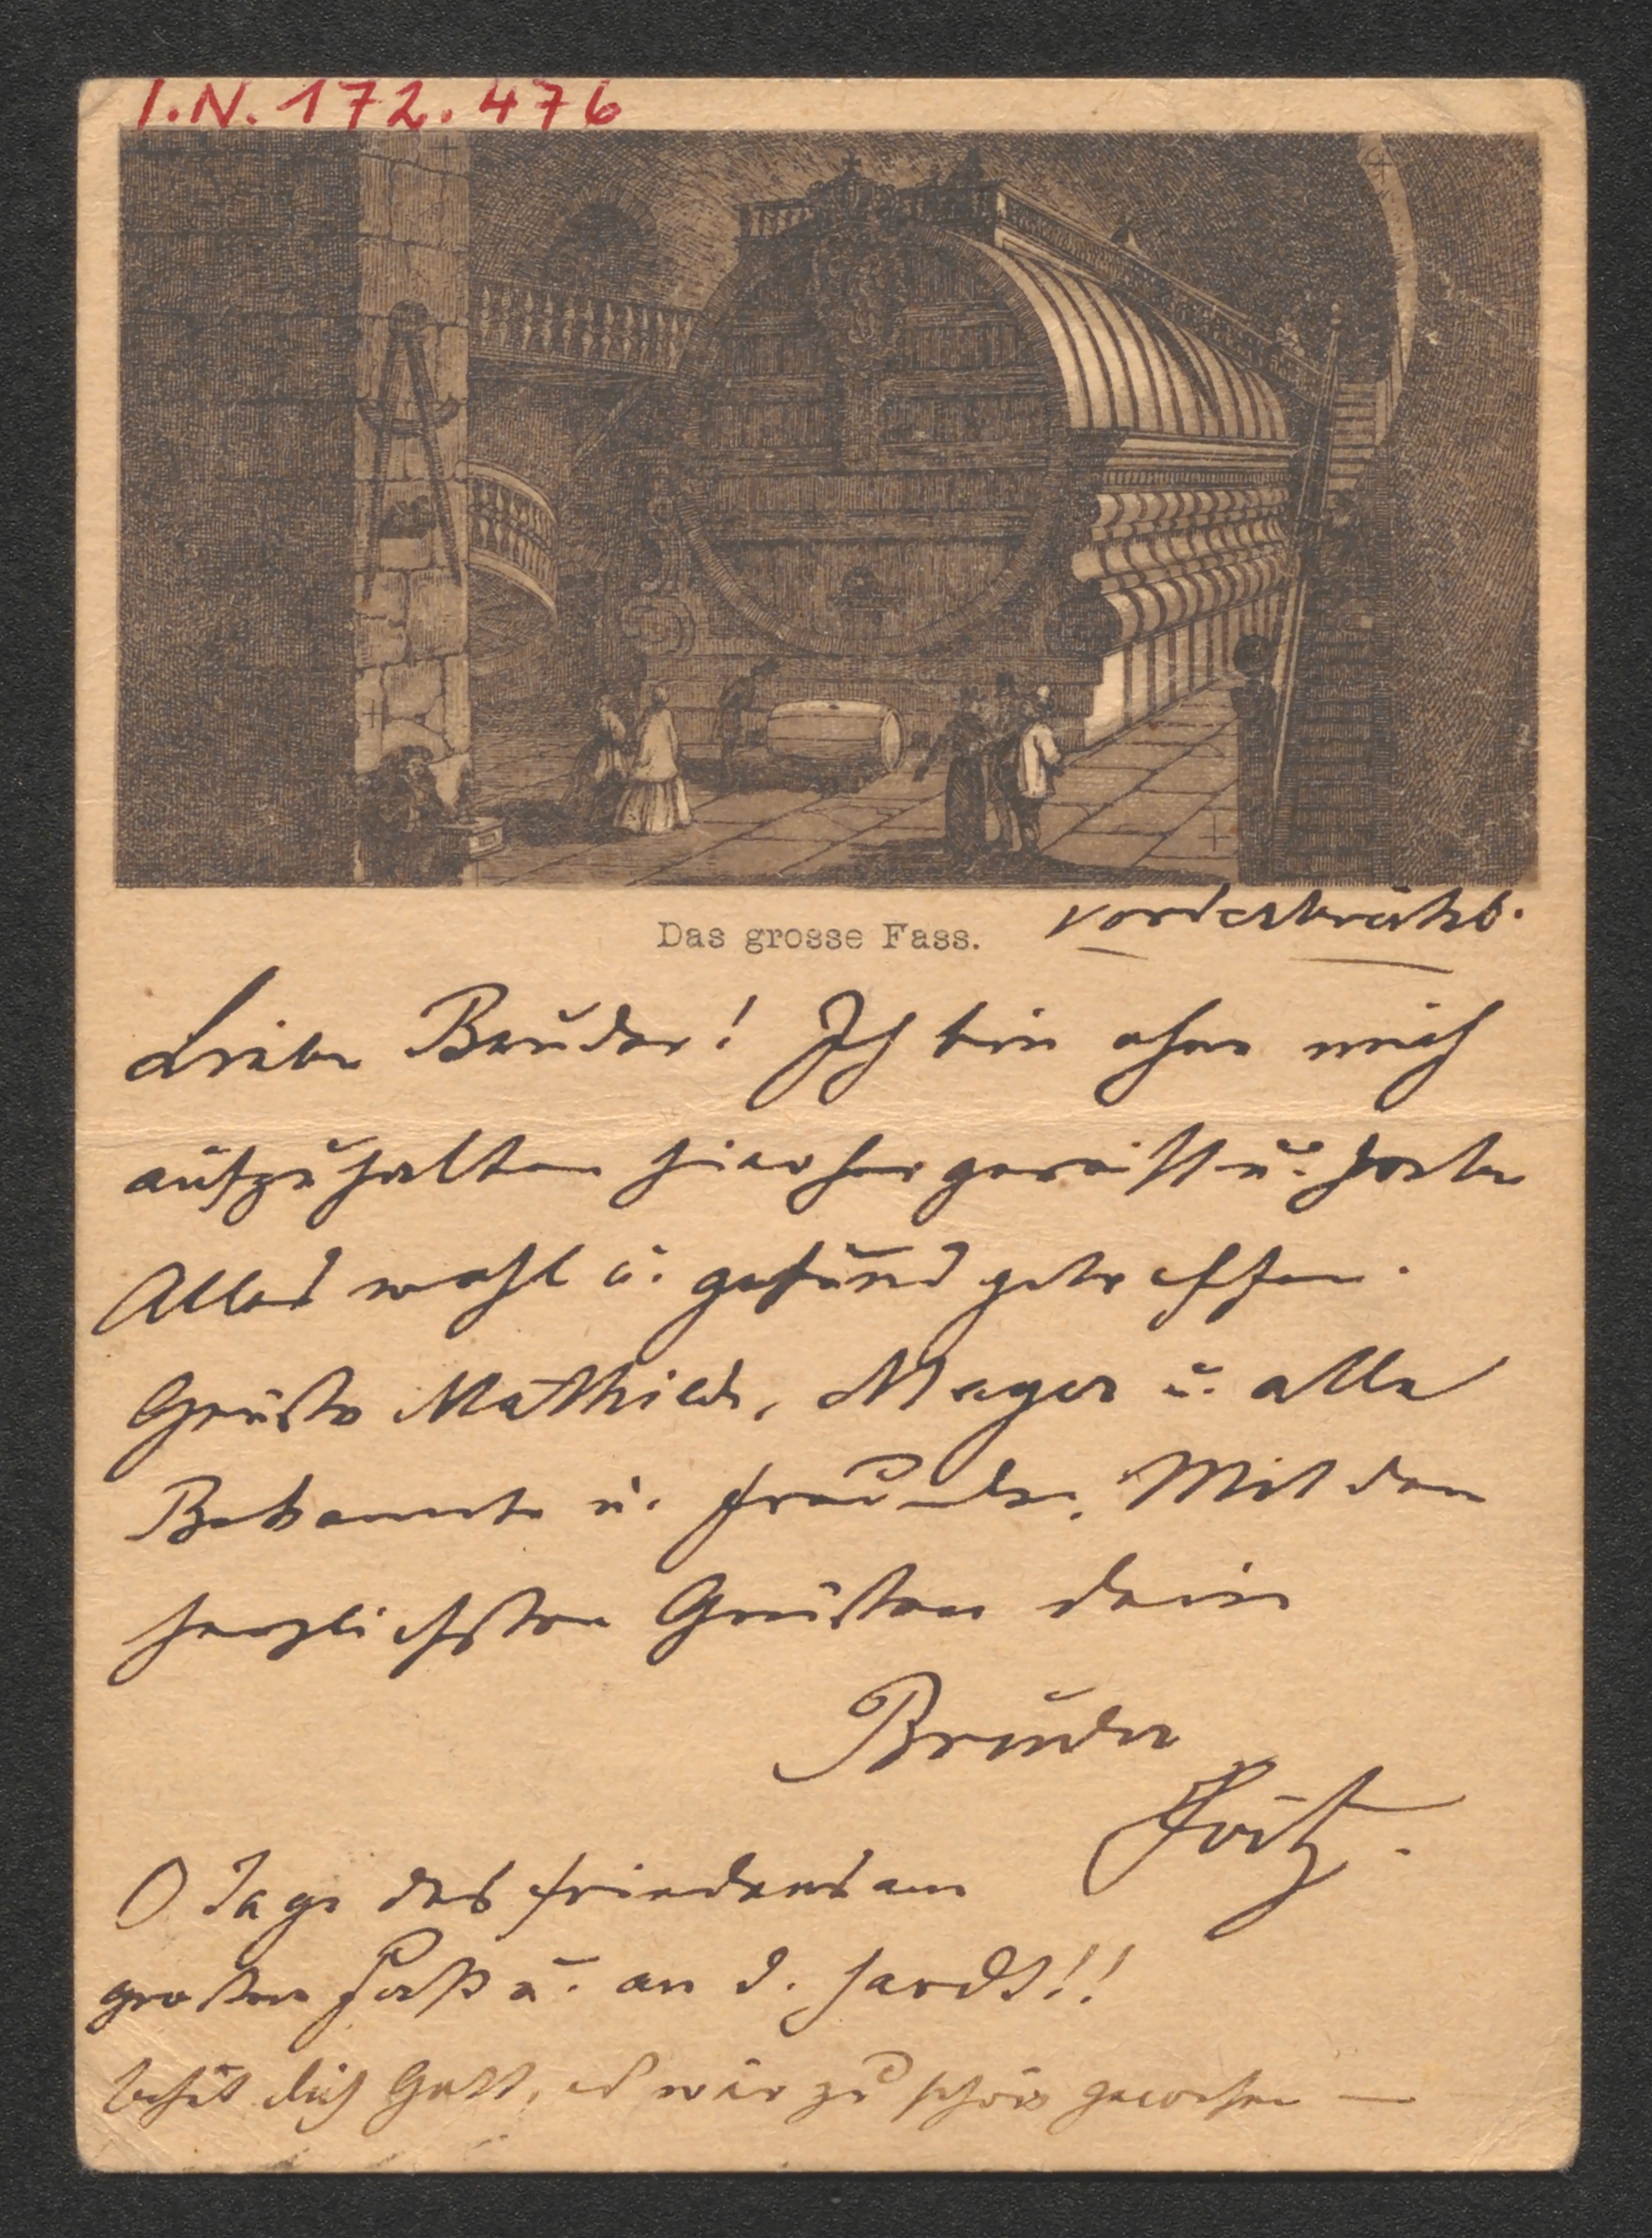 I.N. 172.476
Das grosse Fass.
Lieber Bruder! Ich bin ohne mich
aufzuhalten hierher gereist u. habe
Alles wohl u. gesund getroffen.
Grüße Mathilde, Mayer u. alle
Bekannte u. Freunde. Mit den
herzlichsten Grüßen dein
Bruder
Fritz.
O Tage des Friedens am
großen Faß u. an d. Hardt!!
behüt dich Gott, es wär zu schön gewesen —